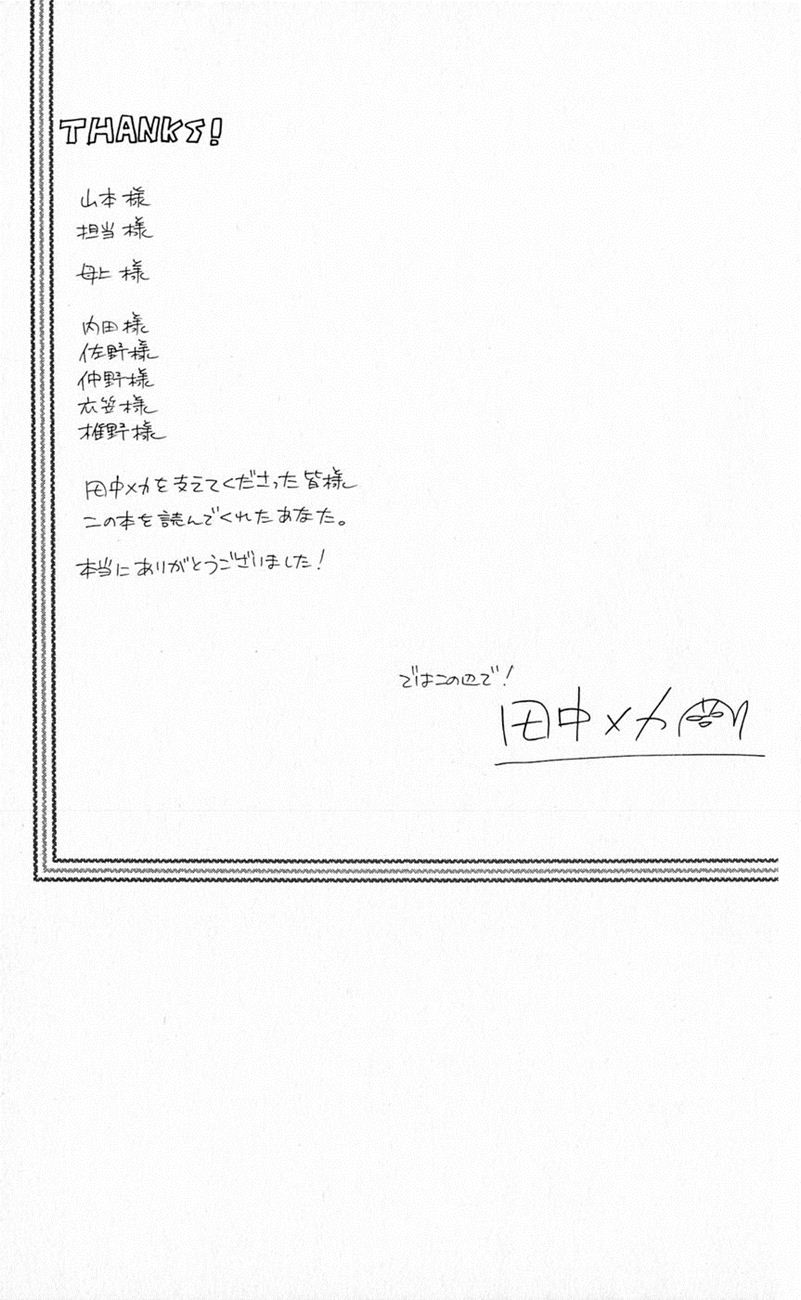 THANKS!
山本様
担当様
母上様
内田様
佐野様
仲野様
衣笠様
椎野様
田中メカを支えてくださった皆様
この本を読んでくれたあなた。
本当にありがとうございました!
ではこの辺で!
田中メカ